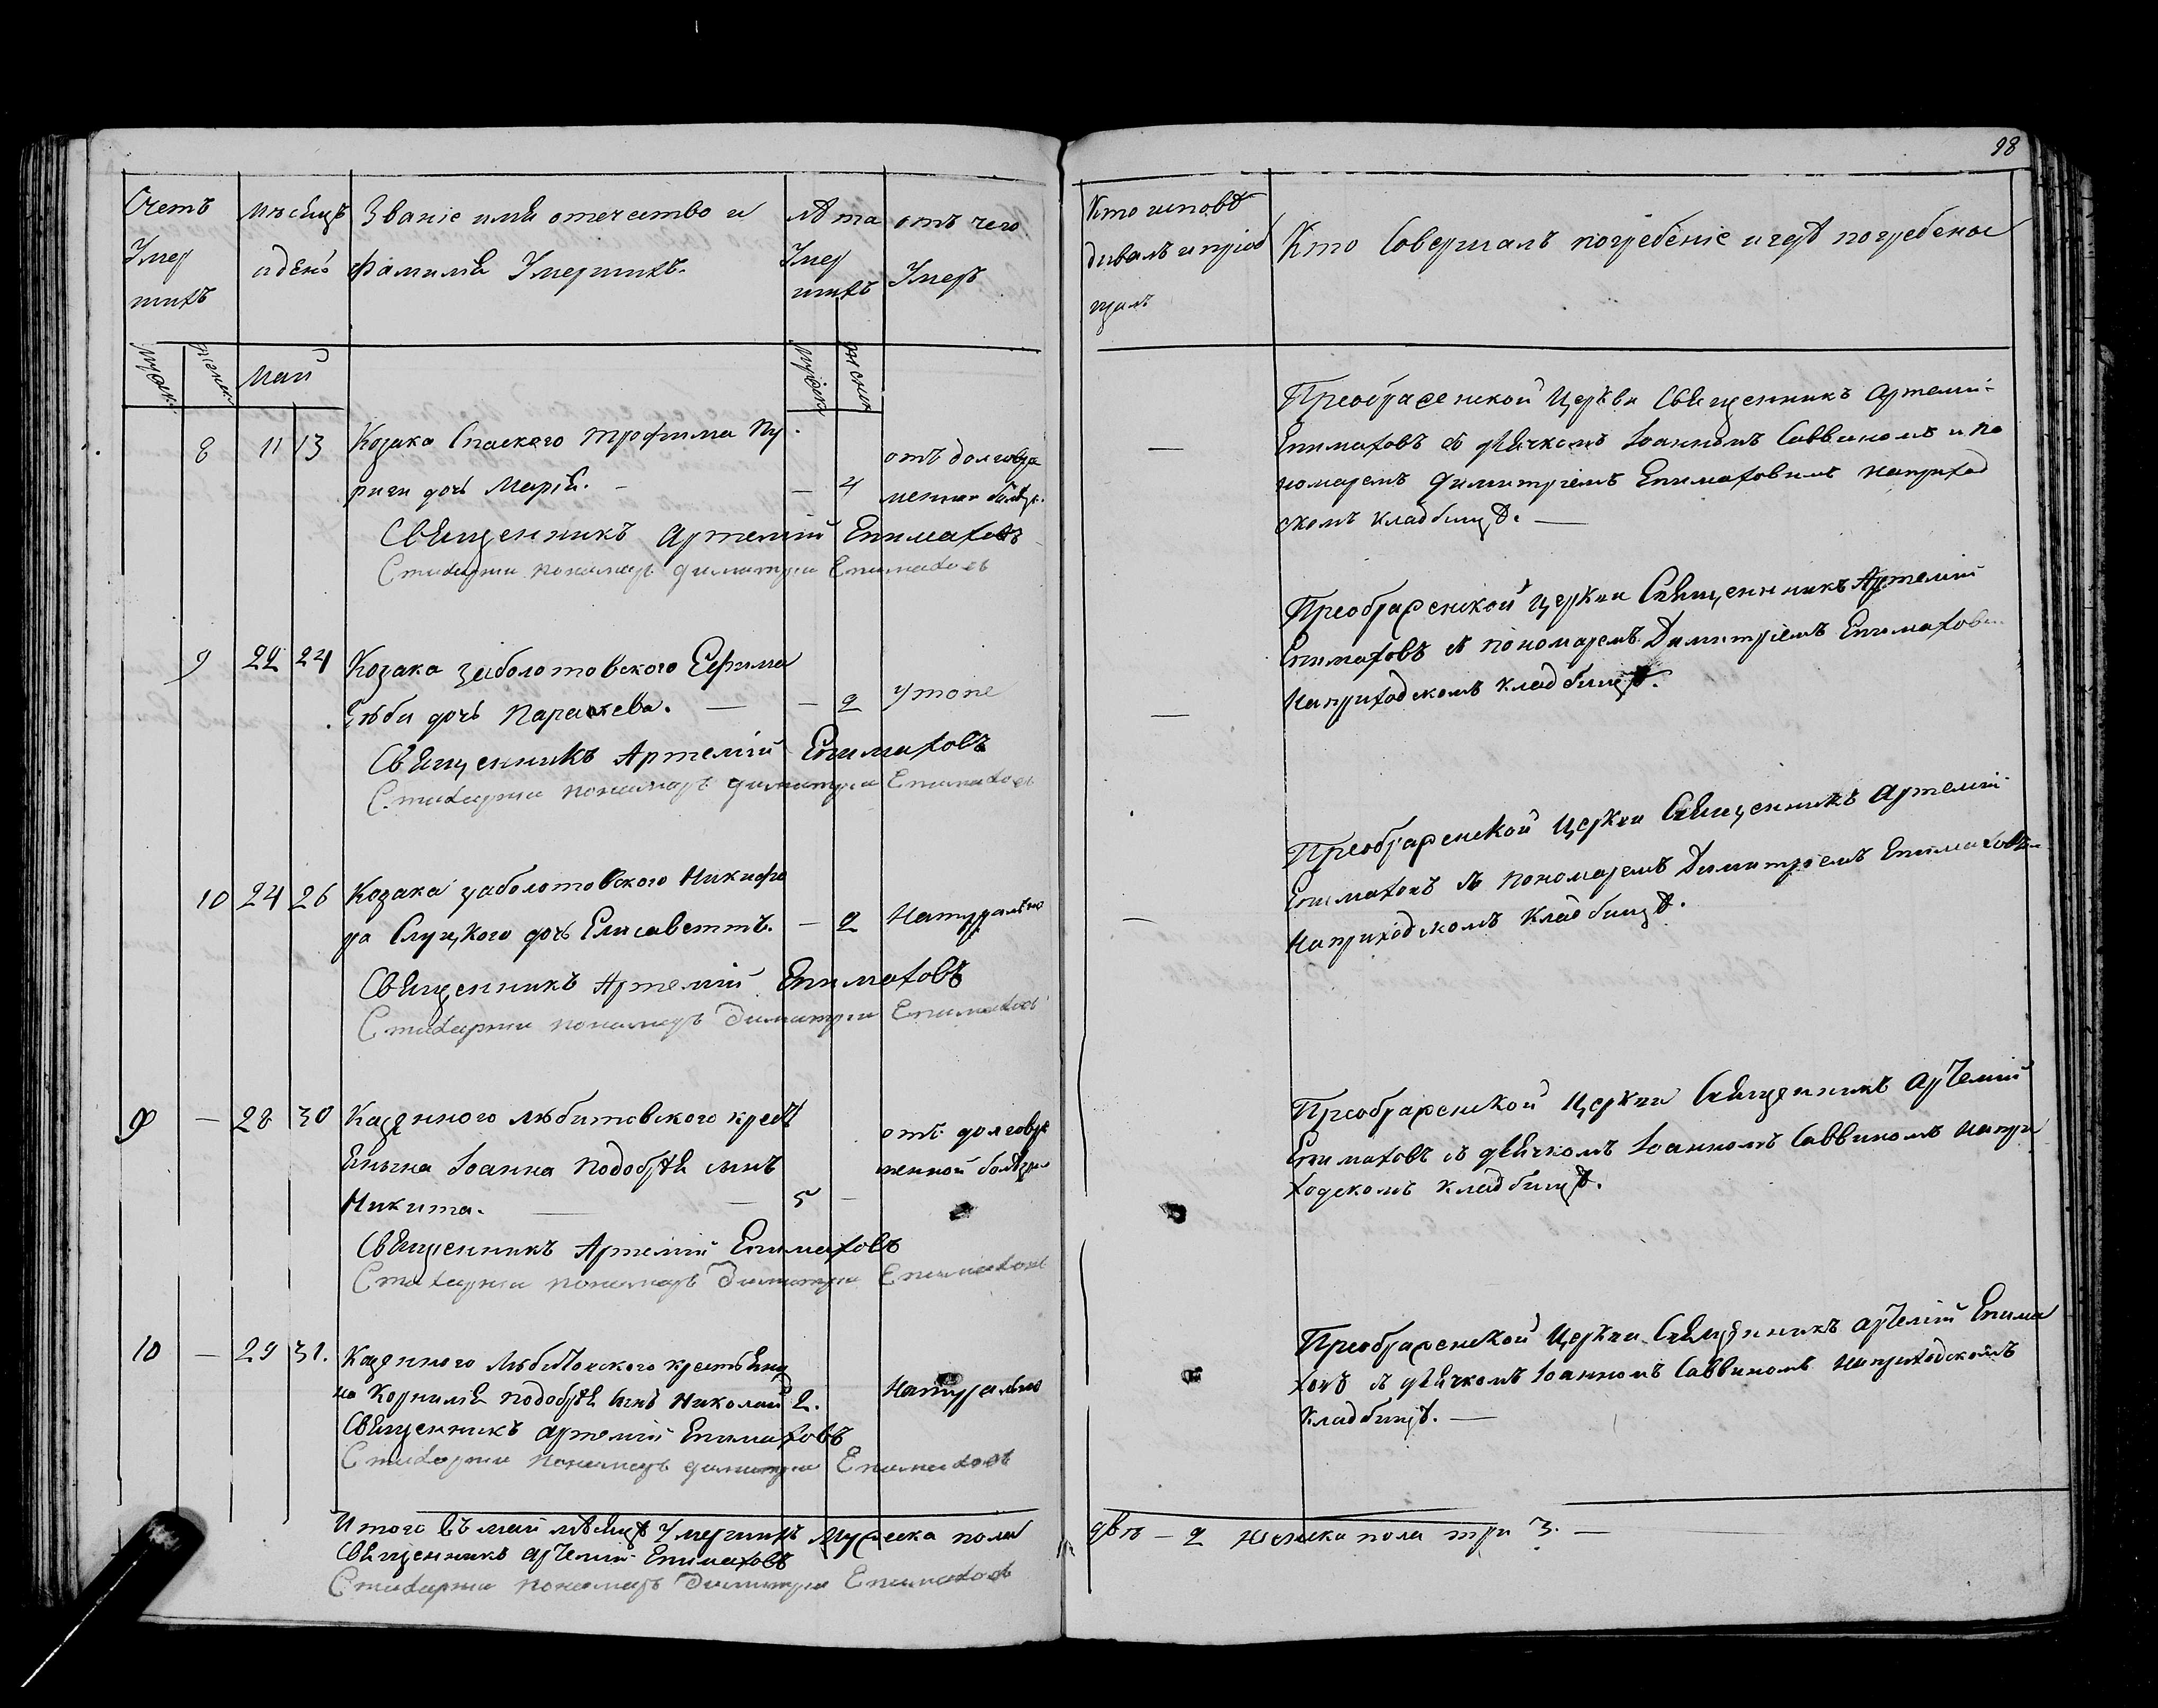 98
Счетъ
Умер
шихъ
мѣсяцъ
и день
Званіе имя отечество и
фамилія Умершихъ.
лѣта
Умер
шихъ
отъ чего
Умеръ
Кто исповѣ
дивалъ и пріоб
щалъ
Кто Совершалъ погребеніе и гдѣ погребеные
мужск.
женск.
май
мужска
женска
8 11 13 Козака Спаского Трофима Пу
риги дочь Марія. — — 4
отъ долговре
менной болѣз.
Священникъ Артемій Епимаховъ
Стихарни пономаръ Димитрии Епимаховъ
— Преображенской Церкви Священникъ Артемій
Епимаховъ съ дячкомъ Іоанномъ Саввиномъ и по
номаремъ Димитріемъ Епимаховимъ наприход
скомъ кладбищѣ. —
9 22 24 Козака заболотовского Ефима
дочь Параскева. — — 2 утопе
Священникъ Артемій Епимаховъ
Стихарни пономаръ Димитрии Епимаховъ
— Преображенской церкви Священникъ Артемій
Епимаховъ съ пономаремъ Димитріемъ Епимахови
Наприходскомъ кладбищѣ.
10 24 26 Козака заболотовского Никифо
ра Слуцкого дочь Елисаветтъ. — 2 Натурально
Священникъ Артемій Епимаховъ
Стихарни пономаръ Димитрии Епимаховъ
— Преображенской церкви Священникъ Артемій
Епимаховъ съ пономаремъ Димитріемъ Епимаховъ
Наприходскомъ кладбищѣ.
9 — 28 30 Казенного любитовского крест
янина Іоанна Подобрѣя синъ
Никита. — — 5 —
отъ долговре
менной болѣзни
Священникъ Артемій Епимаховъ
Стихарни пономаръ Димитрии Епимаховъ
Преображенской Церкви Священникъ Артемій
Епимаховъ съ дячкомъ Іоанномъ Саввиномъ напри
ходскомъ кладбищѣ.
10 — 29 31. Казенного любитовского крестьяни
на Корнилія Подобрѣя синъ Николай 2. Натурально
Священникъ Артемій Епимаховъ
Стихарни пономаръ Димитрии Епимаховъ
Преображенской Церкви Священникъ Артемій Епима
ховъ съ дячкомъ Іоанномъ Саввиномъ наприходскомъ
кладбищѣ. —
Итого въ май мѣсяцѣ Умершихъ Мужеска пола
двѣ — 2 женска пола три 3. —
Священникъ Артемій Епимаховъ
Стихарни пономаръ Димитрии Епимаховъ